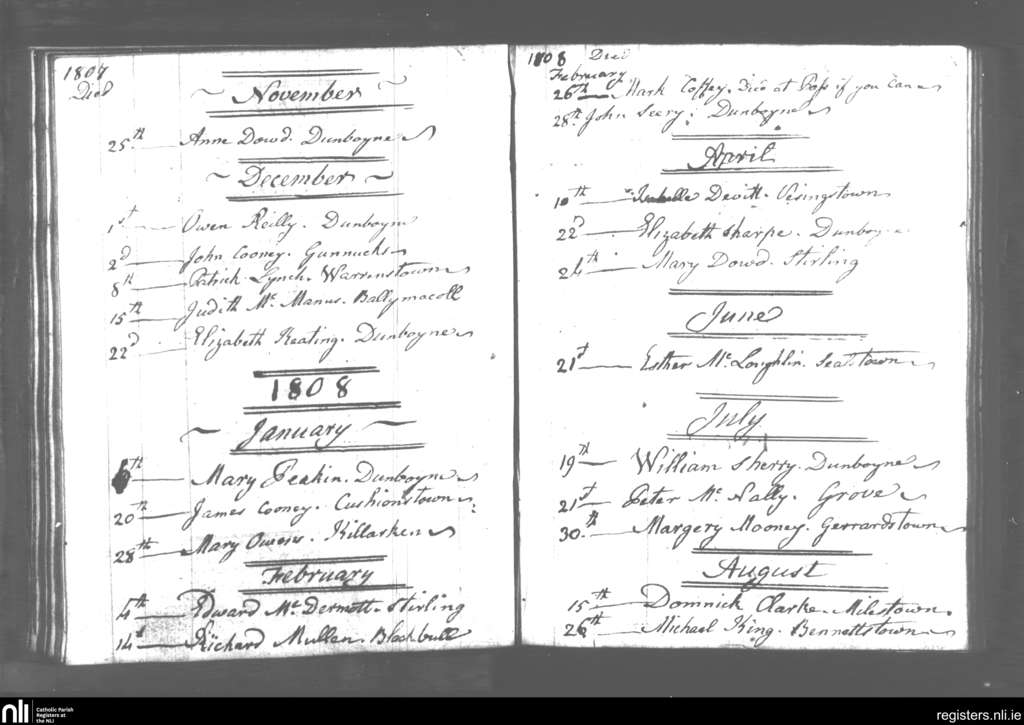 1807
Died
November
25th Anne Dowd. Dunboyne
December
1st Owen Reilly. Dunboyne
2d John Cooney. Gunnucks
8th Patrick Lynch. Warrenstown
15th Judith Mc Manus. Ballymacoll
22d Elizabeth Keating. Dunboyne
1808
January
6th Mary Peakin. Dunboyne
20th James Cooney. Cushionstown
28th Mary Owens. Killasken
February
4th Edward Mc Dermott. Stirling
14th Richard Mullan. Blackbull
1808 Died
February
26th Mark Coffey. at if you Can
28th John Seery. Dunboyne
April
10th Devitt. Vesingstown
22d Elizabeth Sharpe. Dunboyne
24th Mary Dowd. Stirling
June
21st Esther Mc Loughlin. Sea.town
July
19th William Sherry. Dunboyne
21st Peter Mc Nally. Grove
30th Margery Mooney. Gerrardstown
August
15th Domnick Clarke. Milestown
26th Michael King. Bennettstown
nli Catholic Parish
Registers at
the NLI
registers.nli.ie